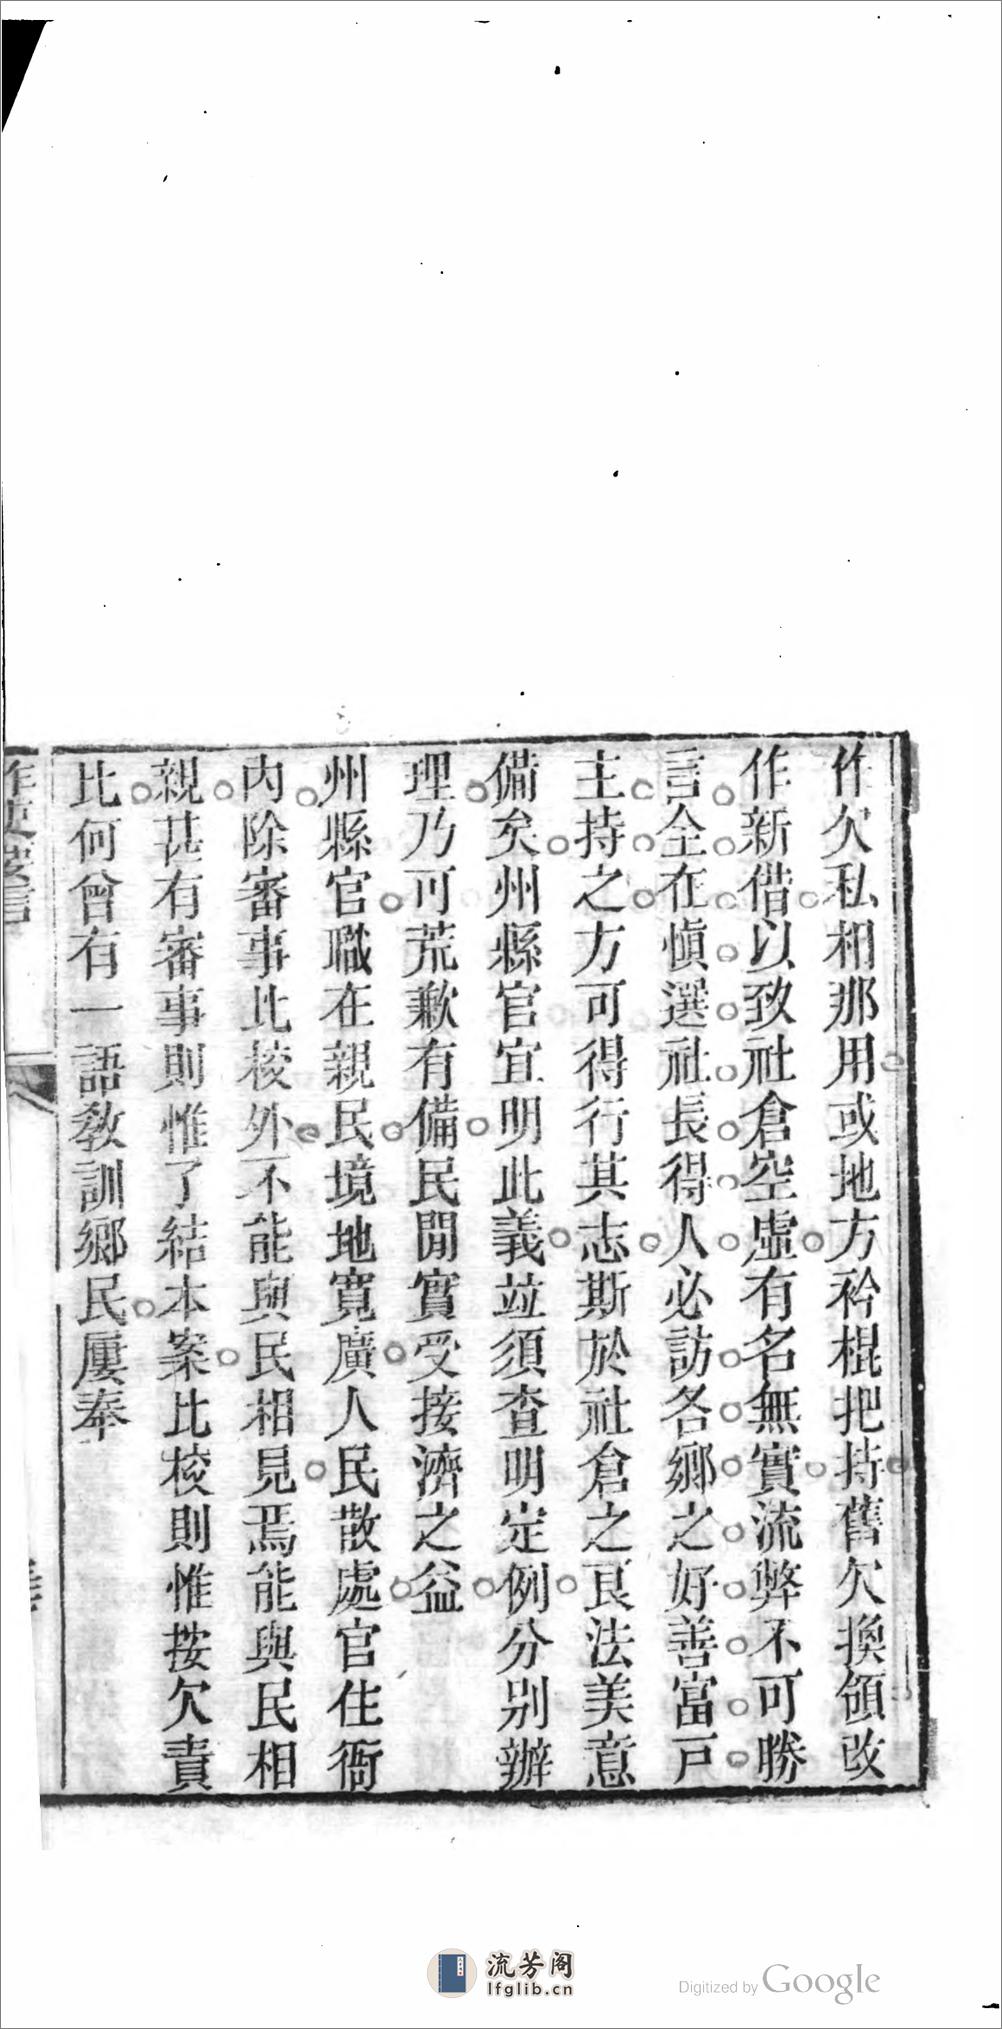 作欠私相那用或地方衿棍把持舊欠換領改
作新借以致社倉空虛有名無實流弊不可勝
言全在慎選社長得人必訪各鄉之好善富戸
主持之方可得行其志斯於社倉之良法美意
備矣州縣官宜明此義竝須查明定例分别辦
理乃可荒歉有備民閒實受接濟之益
州縣官職在親民境地寬廣人民散處官住衙
内除審事比校外不能與民相見焉能與民相
親甚有審事則惟了結本案比校則惟按欠責
比何曾有一語教訓鄉民屢奉
作吏要言
流芳阁
lfglib.cn
Digitized by Google